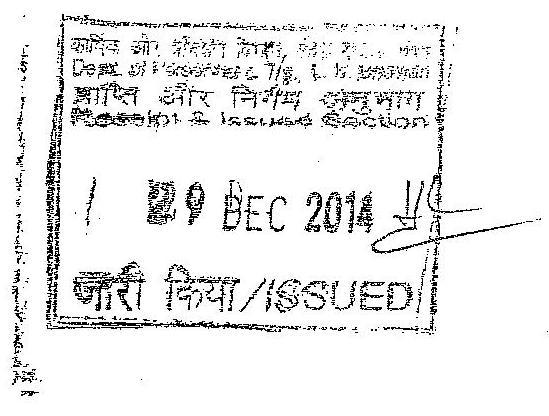 कार्मिक और प्रशिक्षण विभाग,
Dept. of Personnel & Trg.,
प्राप्ति और निर्गम अनुभाग
Receipt & Issue Section
29 DEC 2014
जारी किया/ISSUED